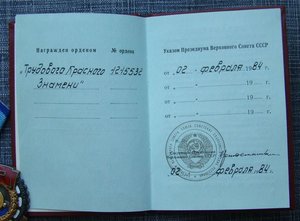 Награжден орденом № ордена
"Трудового Красного 1215532
Знамени"
Указом Президиума Верховного Совета СССР
от 02 февраля 1984 г.
от 19 г.
от 19 г.
от 19 г.
02 февраля 1984 г.